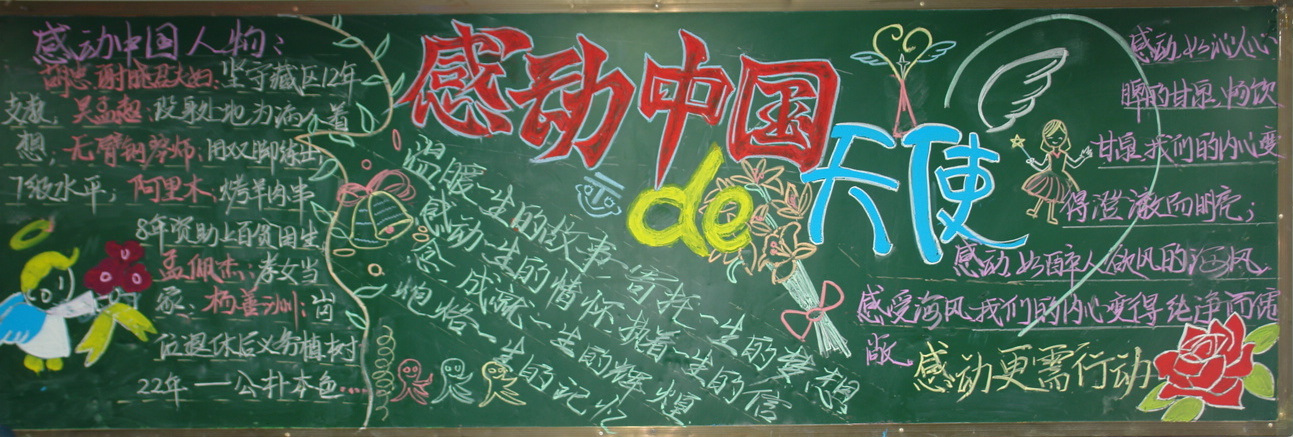 感动中国人物：
胡忠、谢晓君夫妇：坚守藏区12年
支教，吴孟超：没累处地为病人着
想，无臂钢琴师：用双脚练出
7级水平；阿里木：烤羊肉串
8年资助上百贫困生
孟佩杰：孝女当
家、杨善洲：岗
位退休后义务植树
22年——公朴本色……
感动中国
de
天使
温暖一生的故事，寄托一生的梦想
感动一生的情怀，执着一生的信
念，成就一生的辉煌
炮烙一生的记忆
感动，如沁人心
脾的甘泉，啊饮
甘泉，我们的内心变
得澄澈而明亮；
感动，如醉人欲风的海风，
感受海风，我们的内心变得纯净而儒
感动更需行动